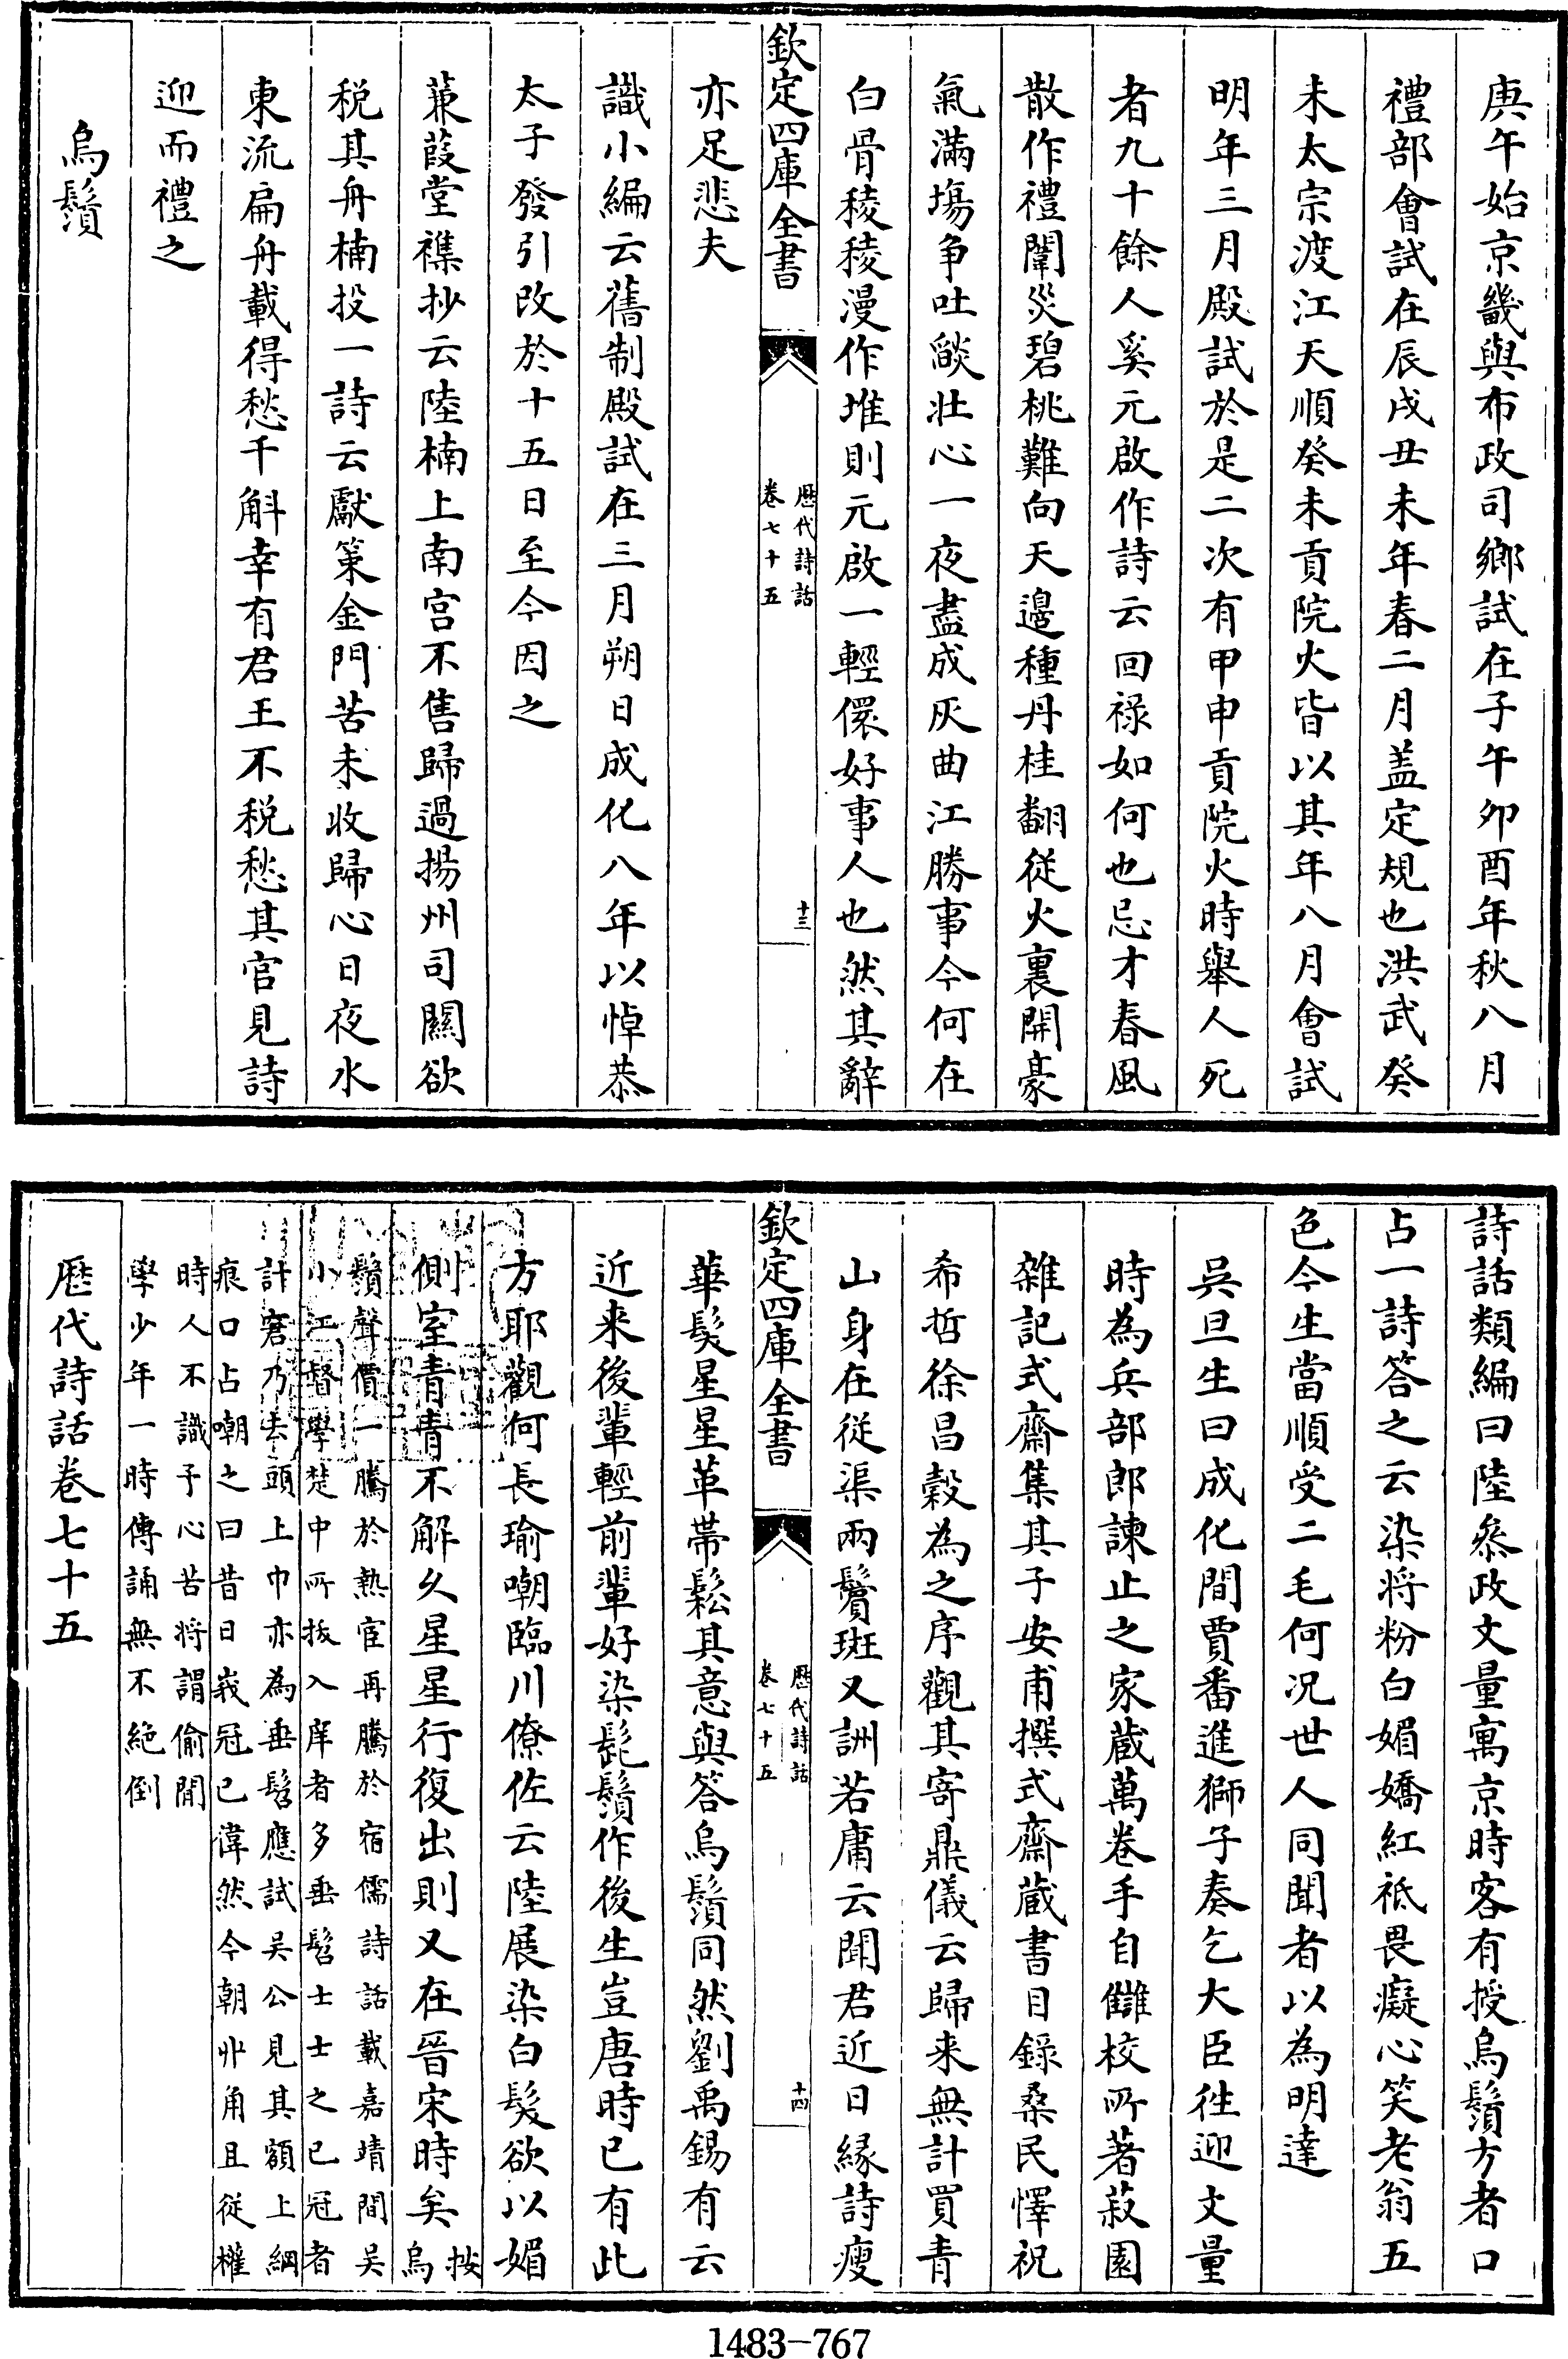 庚午始京畿與布政司鄉試在子午卯酉年秋八月
禮部會試在辰戌丑未年春二月盖定規也洪武癸
未太宗渡江天順癸未貢院火皆以其年八月會試
明年三月殿試於是二次有甲申貢院火時舉人死
者九十餘人奚元啟作詩云回祿如何也忌才春風
散作禮闈災碧桃難向天邊種丹桂翻從火裏開豪
氣滿塲争吐燄壯心一夜盡成灰曲江勝事今何在
白骨稜稜漫作堆則元啟一輕儇好事人也然其辭
欽定四庫全書
歷代詩話
卷七十五
十三
亦足悲夫
識小編云舊制殿試在三月朔日成化八年以悼恭
太子發引改於十五日至今因之
蒹葭堂襍抄云陸楠上南宮不售歸過揚州司關欲
税其舟楠投一詩云獻策金門苦未收歸心日夜水
東流扁舟載得愁千斛幸有君王不税愁其官見詩
迎而禮之
烏鬚
詩話類編曰陸叅政文量寓京時客有授烏鬚方者口
占一詩答之云染將粉白媚嬌紅祗畏癡心笑老翁五
色今生當順受二毛何况世人同聞者以為明達
吳旦生曰成化間賈番進獅子奏乞大臣徃迎文量
時為兵部郎諫止之家蔵萬卷手自讎校所著菽園
雜記式齋集其子安甫撰式齋蔵書目錄桑民懌祝
希哲徐昌榖為之序觀其寄鼎儀云歸来無計買青
山身在從渠兩鬢斑又詶若庸云聞君近日緣詩瘦
欽定四庫全書
歷代詩話
卷七十五
十四
華髮星星革帯鬆其意與答烏鬚同然劉禹錫有云
近来後輩輕前輩好染髭鬚作後生豈唐時已有此
方耶觀何長瑜嘲臨川僚佐云陸展染白髮欲以媚
側室青青不解久星星行復出則又在晉宋時矣
按
烏
鬚聲價一騰於熱宦再騰於宿儒詩話載嘉靖間吳
小江督學楚中所拔入庠者多垂髫士士之已冠者
計窘乃去頭上巾亦為垂髫應試吳公見其額上網
痕口占嘲之曰昔日峩冠已偉然今朝丱角且從權
時人不識予心苦将謂偷閒
學少年一時傳誦無不絕倒
歷代詩話卷七十五
1483-767